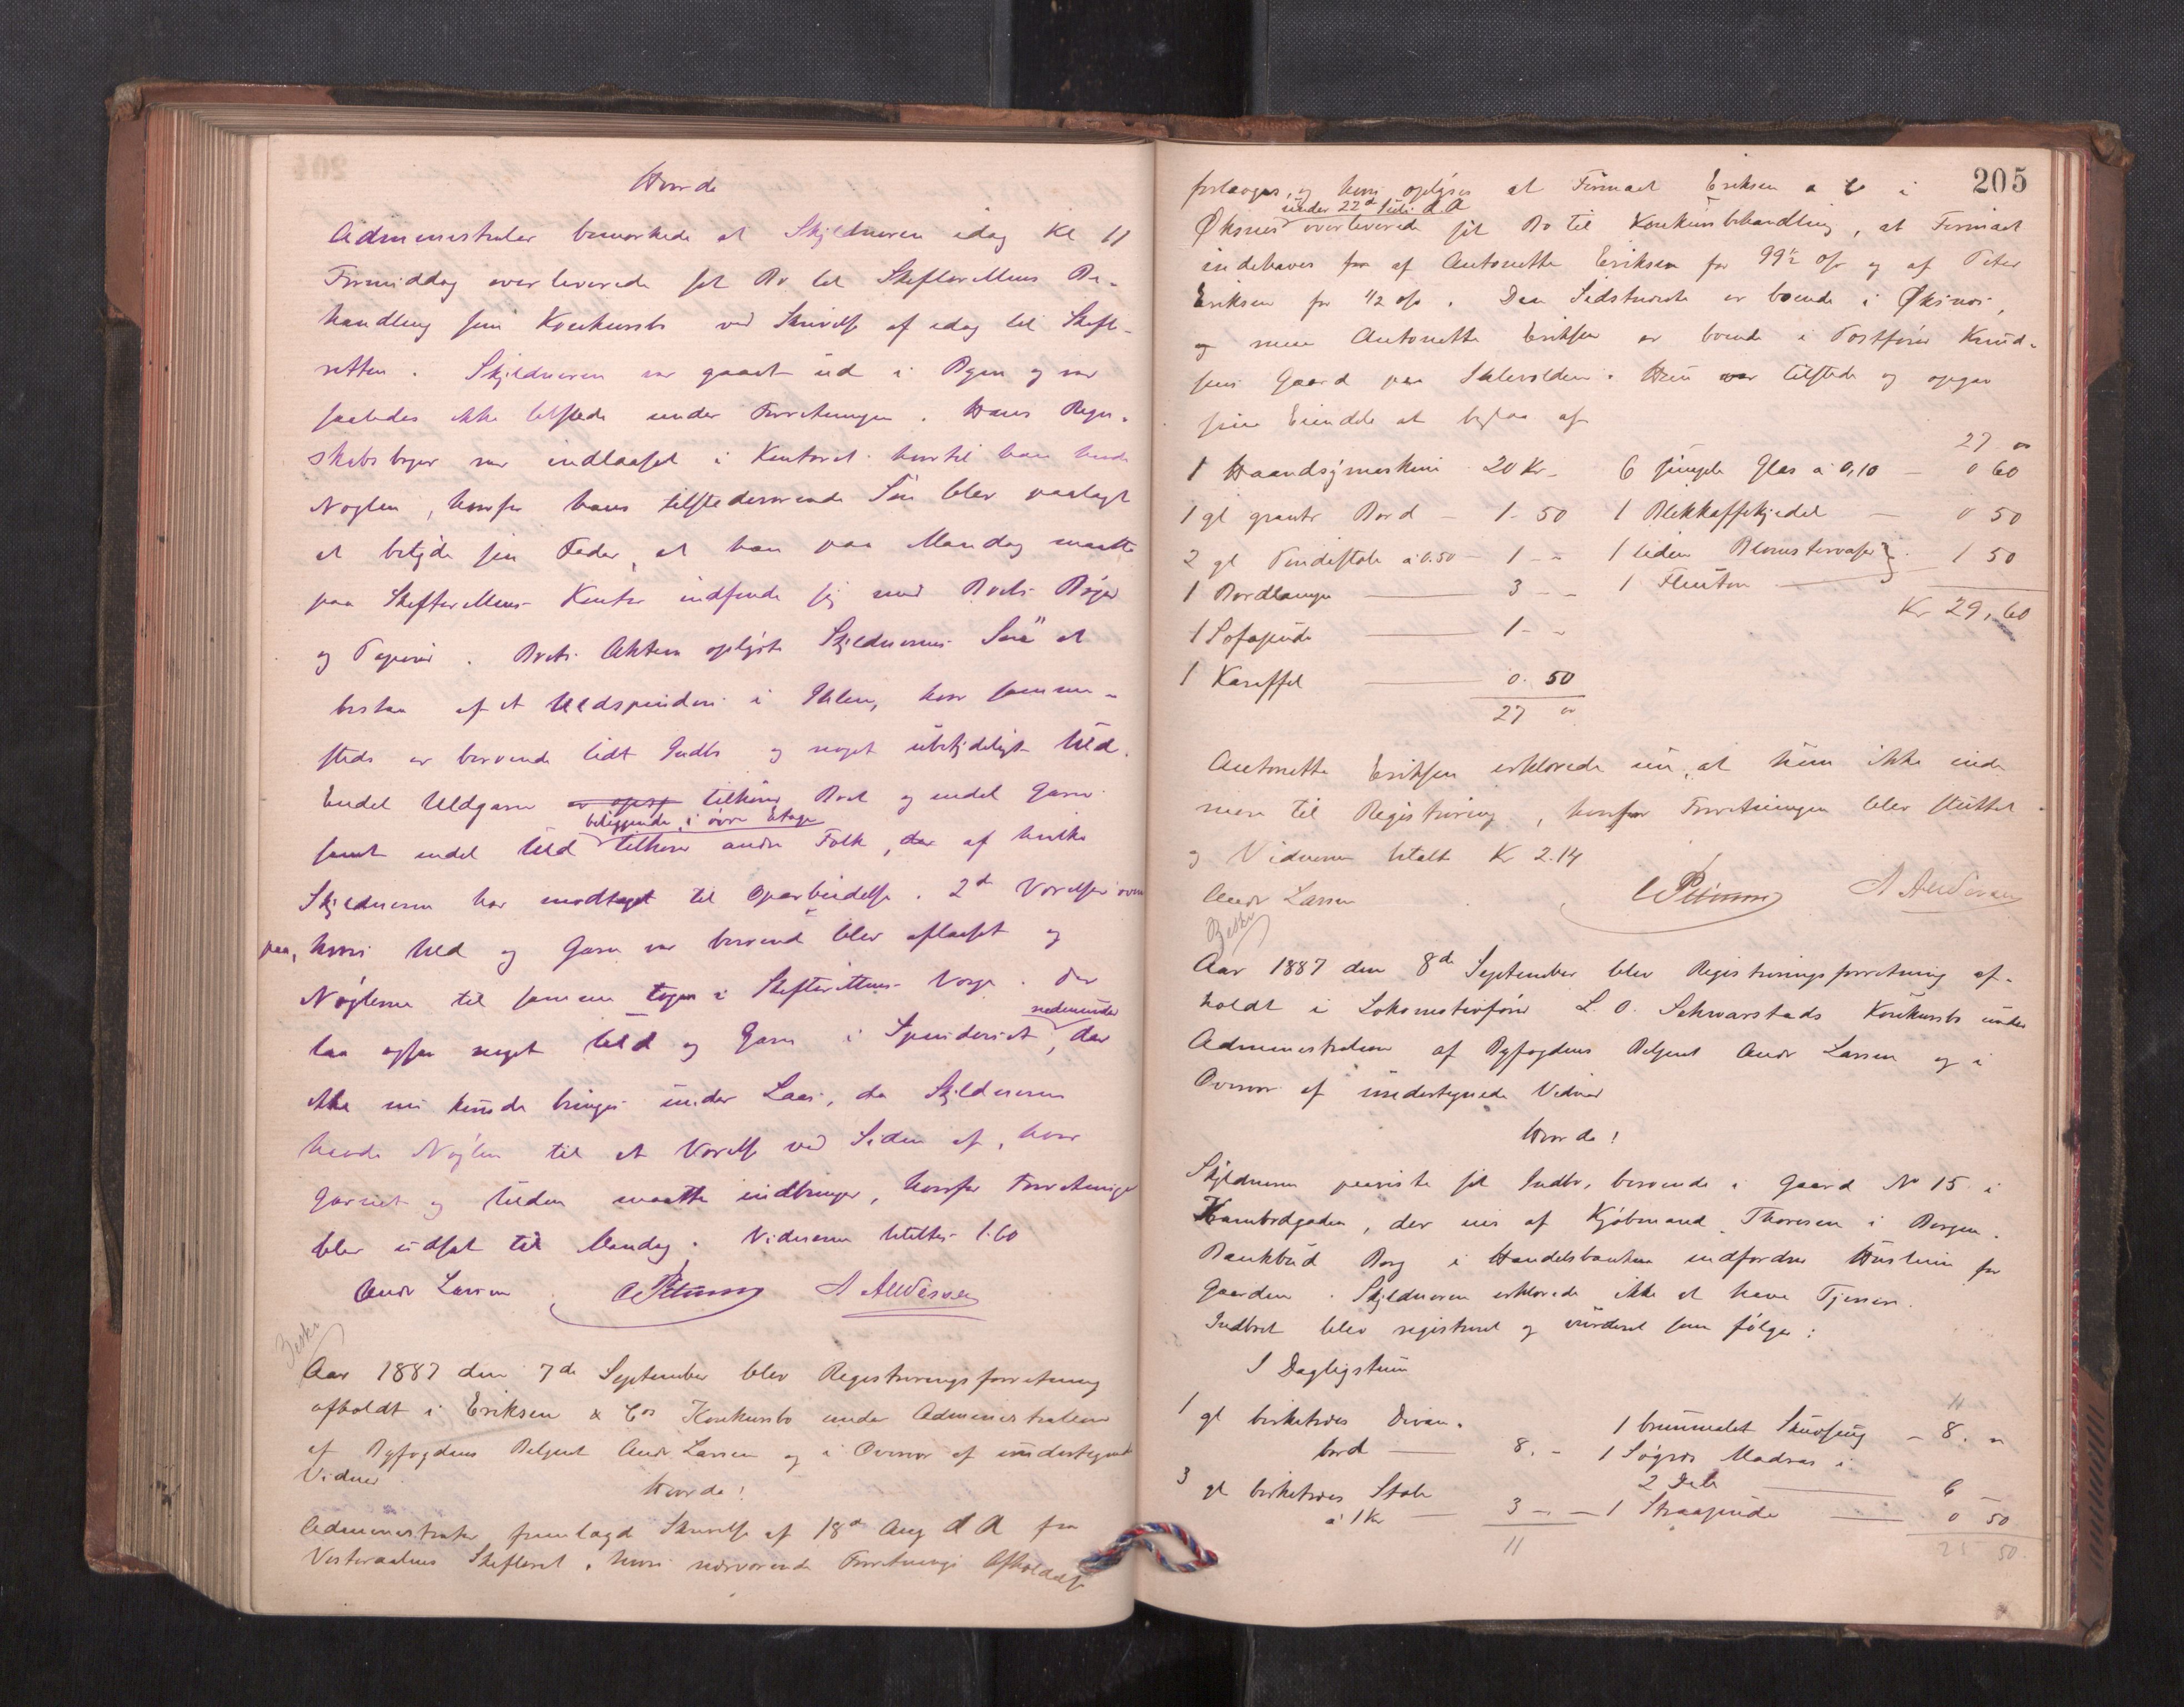 Hvorda
Administrator bemærkede at Skyldneren idag Kl 11
Formiddag overleverede sit Bo til Skifterettens Be-
handling som Konkursbo ved Skrivelse af idag til Skift-
retten. Skyldneren var gaaet ud i Byen og var
saaledes ikke tilstede under Forretningen. Hans Regn-
skabsbøger var indlaaset i Kontoret hvortil han havde
Nøglen, hvorfor hans tilstedeværende Søn blev paalagt
at betyde sin Fader, at han paa Mandag maatte
paa Skifterettens Kontor indfinde sig med Boets Bøger
og Papirer. Boets Aktiva oplyste Skyldnerens Søn at
bestaa af et Uldspinderi i Ihlen, hvor samme-
steds er beroende lidt Indbo og noget ubetydeligt Uld.
Endel Uldgarn er opsp tilhører Boet og endel Garn
beliggende i øvre Etage
samt endel Uld tilhører andre Folk, der af hvilke
Skyldneren har modtaget til Oparbeidelse. 2de Værelser oven
paa, hvori Uld og Garn var beroende blev aflaaset og
Nøglerne til samme tagen i Skifterettens Værge. Der
nedenunder
laa ogsaa noget Uld og Garn i Spinderiet, der
ikke nu kunde bringes under Laas, da Skyldneren
havde Nøglen til et Værelse ved Siden af, hvor
Garnet og Ulden maatte indbringes, hvorfor Forretningen
blev udsat til Mandag. Vidnerne betaltes 1.60
Andr Larsen A Andersen
Beskr
Aar 1887 den 7de September blev Registreringsforretning
afholdt i Eriksen & Cos Konkursbo under Administration
af Byfogdens Betjent Andr Larsen og i Overvær af undertegnede
Vidner
Hvorda!
Administrator fremlagde Skrivelse af 18de Aug d A fra
Vesteraalens Skifteret, hvori nærværende Forretnings Afholdelse
205
forlanges, og hvori oplyses at Firmaet Eriksen & Co i
under 22de Juli d.A
Øksnes overleverede sit Bo til Konkursbehandling, at Firmaet
indehaves fra af Antonette Eriksen for 99½ o/o og af Peter
Eriksen for 1/2 o/o. Den Sidstnævnte er boende i Øksnes,
og mens Antonette Eriksen er boende i Postfører Knud-
sens Gaard paa Ihlevolden. Hun var tilstede og opgav
sine Eiendele at bestaa af
1 Haandsymaskine 20 Kr -
1 gl grantr Bord - 1 - 50
2 gl Pindestole à 0.50 - 1 - -
1 Bordlampe - 3 - -
1 Sofapude - 1 - -
1 Karaffel - 0. 50
27 "
27 "
6 simple Glas à 0,10 - 0 60
1 Blikkaffekjedel - 0 50
1 liden Blomstervase
1 - 1 50
Kr 29,60
Antonette Eriksen erklærede nu, at hun ikke eiede
mere til Registrering, hvorfor Forretningen blev sluttet
og Vidnerne betalt Kr 2.14
Andr Larsen A Andersen
Beskr
Aar 1887 den 8de September blev Registreringsforretning af-
holdt i Lokomotivfører L. O. Schwarstads Konkursbo under
Administration af Byfogdens Betjent Andr Larsen og i
Overvær af undertegnede Vidner
Hvorda!
Skyldneren paaviste sit Indbo, beroende i Gaard No 15 i
, der eies af Kjøbmand Thoresen i Bergen.
Bankbud Borg i Handelsbanken indfordrer Husleien for
Gaarden. Skyldneren erklærede ikke at have Tjenere.
Indboet blev registreret og vurderet som følger:
I Dagligstuen
1 gl birketræes Divan-
bord - 8. -
3 gl birketræes Stole
à 1 Kr - 3 - -
11
11
1 brunmalet - 8. "
1 Søgræs Madras i
2 Dele - 6 -
1 Straapude - 0 50
25 50